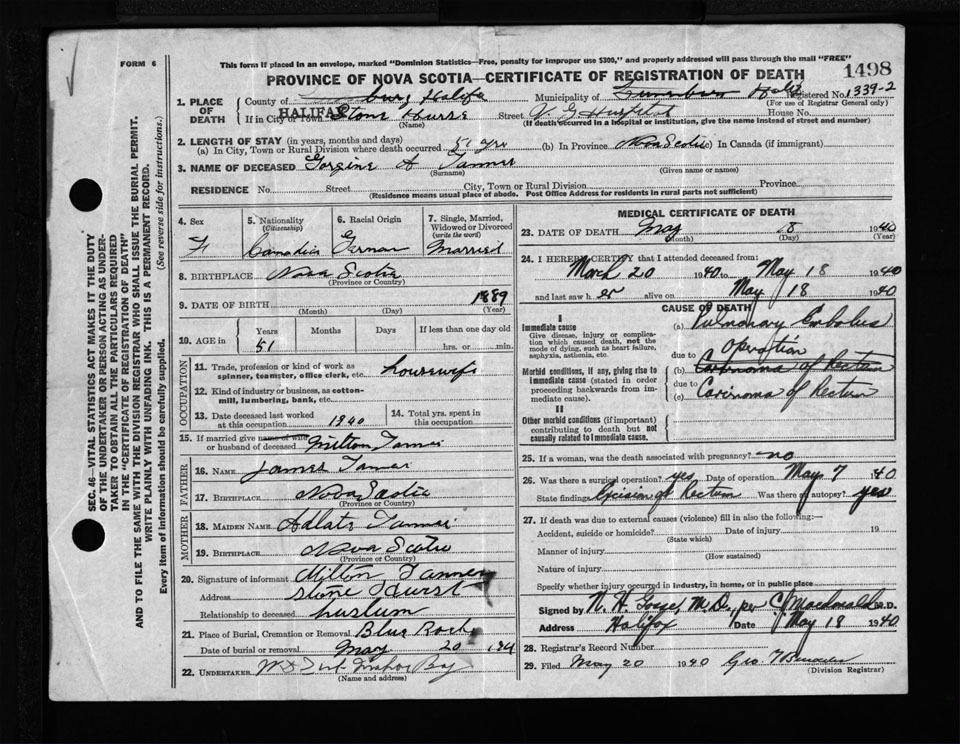 FORM 6
This form if placed in an envelope, marked "Dominion Statistics—Free, penalty for improper use $300," and properly addressed will pass through the mail "FREE"
PROVINCE OF NOVA SCOTIA—CERTIFICATE OF REGISTRATION OF DEATH
1498
1. PLACE OF DEATH
County of Halifx Municipality of Registered No. 1339-2
(For use of Registrar General only)
HALIFAX
If in City or Town Stone Street V. G. Hospital House No.
(Name) (If death occurred in a hospital or institution, give the name instead of street and number)
2. LENGTH OF STAY (in years, months and days)
(a) In City, Town or Rural Division where death occurred 51 yrs (b) In Province Nova Scotia (c) In Canada (if immigrant)
3. NAME OF DECEASED Gorgine A Tanner
(Surname) (Given name or names)
RESIDENCE No. Street City, Town or Rural Division Province
(Residence means usual place of abode. Post Office Address for residents in rural parts not sufficient)
4. Sex F
5. Nationality (Citizenship) Canadian
6. Racial Origin German
7. Single, Married, Widowed or Divorced (write the word) Married
8. BIRTHPLACE Nova Scotia
(Province or Country)
9. DATE OF BIRTH 1889
(Month) (Day) (Year)
10. AGE in Years Months Days If less than one day old
51 hrs. or min.
OCCUPATION
11. Trade, profession or kind of work as spinner, teamster, office clerk, etc. housewife
12. Kind of industry or business, as cotton-mill, lumbering, bank, etc.
13. Date deceased last worked at this occupation 1940
14. Total yrs. spent in this occupation
15. If married give name of wife or husband of deceased Milton Tanner
FATHER
16. NAME James Tanner
17. BIRTHPLACE Nova Scotia
(Province or Country)
MOTHER
18. MAIDEN NAME Tanner
19. BIRTHPLACE Nova Scotia
(Province or Country)
20. Signature of informant Milton Tanner
Address Stone Hurst
Relationship to deceased
21. Place of Burial, Cremation or Removal Blue Rock
Date of burial or removal May 20 194
22. UNDERTAKER Mahon Bay
(Name and address)
MEDICAL CERTIFICATE OF DEATH
23. DATE OF DEATH May 18 1940
(Month) (Day) (Year)
24. I HEREBY CERTIFY that I attended deceased from:
March 20 1940 to May 18 1940
and last saw her alive on May 18 1940
CAUSE OF DEATH
I
Immediate cause
Give disease, injury or complication which caused death, not the mode of dying, such as heart failure, asphyxia, asthenia, etc.
(a) Pulmonary Embolus
due to Operation
Morbid conditions, if any, giving rise to immediate cause (stated in order proceeding backwards from immediate cause).
(b) Carcinoma of Rectum
due to
(c) Carcinoma of Rectum
II
Other morbid conditions (if important) contributing to death but not causally related to immediate cause.
25. If a woman, was the death associated with pregnancy? no
26. Was there a surgical operation? yes Date of operation May 7 1940
State findings Excision of Rectum Was there autopsy? yes
27. If death was due to external causes (violence) fill in also the following:—
Accident, suicide or homicide? Date of injury 19
(State which)
Manner of injury
(How sustained)
Nature of injury
Specify whether injury occurred in industry, in home, or in public place
Signed by N. H. Gosse, M.D. per C. J. Macdonald M.D.
Address Halifax Date May 18 1940
28. Registrar's Record Number
29. Filed May 20 1940 Geo.
(Division Registrar)
SEC. 46—VITAL STATISTICS ACT MAKES IT THE DUTY
OF THE UNDERTAKER OR PERSON ACTING AS UNDER-
TAKER TO OBTAIN ALL THE PARTICULARS REQUIRED
IN THE "CERTIFICATE OF REGISTRATION OF DEATH"
AND TO FILE THE SAME WITH THE DIVISION REGISTRAR WHO SHALL ISSUE THE BURIAL PERMIT.
WRITE PLAINLY WITH UNFADING INK. THIS IS A PERMANENT RECORD.
Every item of information should be carefully supplied. (See reverse side for instructions.)